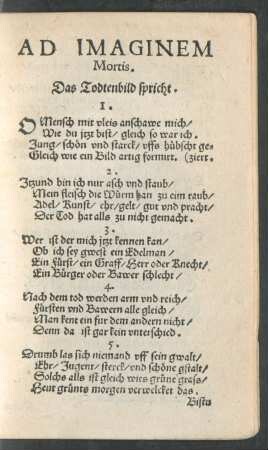 AD IMAGINEM
Mortis.
Das Todtenbild spricht.
1.
O Mensch mit vleis anschawe mich/
Wie du jtzt bist/ gleich so war ich.
Jung/ schön vnd starck/ vffs hübscht ge-
Gleich wie ein Bild artig formirt. (ziert.
2.
Jtzund bin ich nur asch vnd staub/
Mein fleisch die Würm han zu eim raub/
Adel/ Kunst/ ehr/ gelt/ gut vnd pracht/
Der Tod hat alls zu nicht gemacht.
3.
Wer ist der mich jtzt kennen kan/
Ob ich sey gwest ein Edelman/
Ein Fürst/ ein Graff/ Herr oder Knecht/
Ein Bürger oder Bawer schlecht/
4.
Nach dem tod werden arm vnd reich/
Fürsten vnd Bawern alle gleich/
Man kent ein fur dem andern nicht/
Denn da ist gar kein vnterschied.
5.
Drumb las sich niemand vff sein gwalt/
Ehr/ Jugent/ sterck/ vnd schöne gstalt/
Solchs alls ist gleich wies grüne grass/
Heut grünts morgen verwelcket das.
Bistu